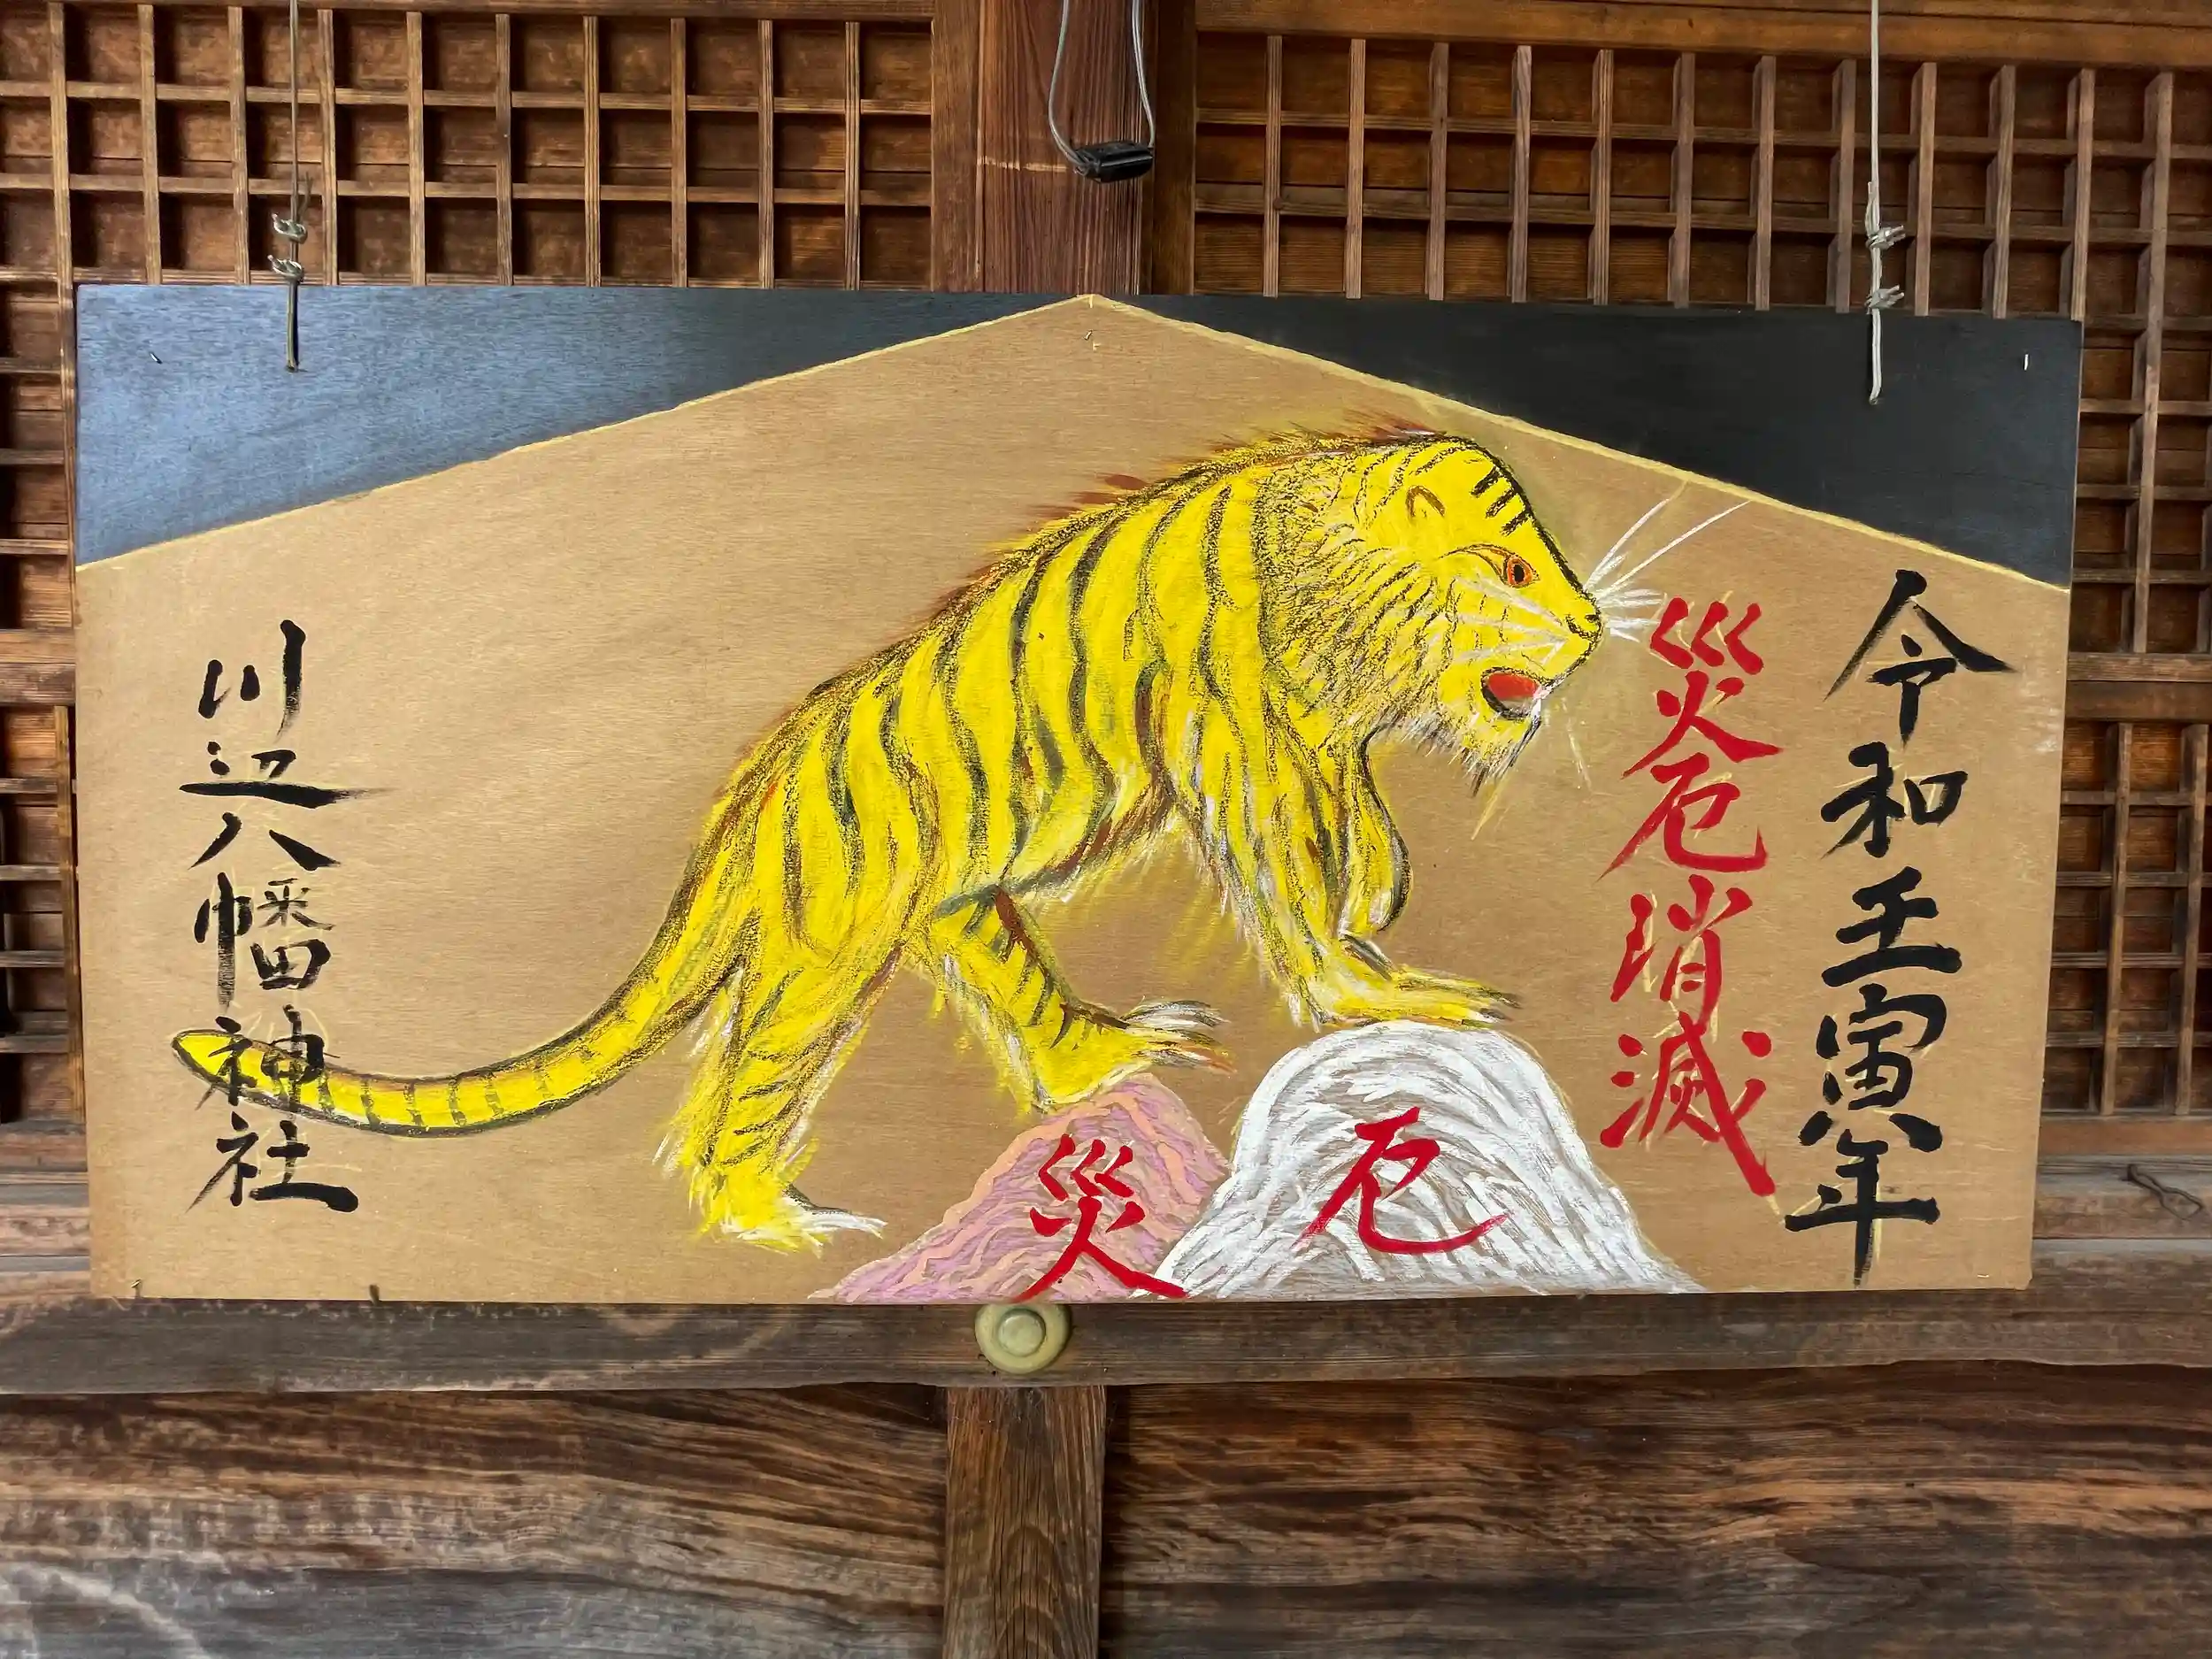 令和壬寅年
災厄消滅
厄
災
川辺八幡神社